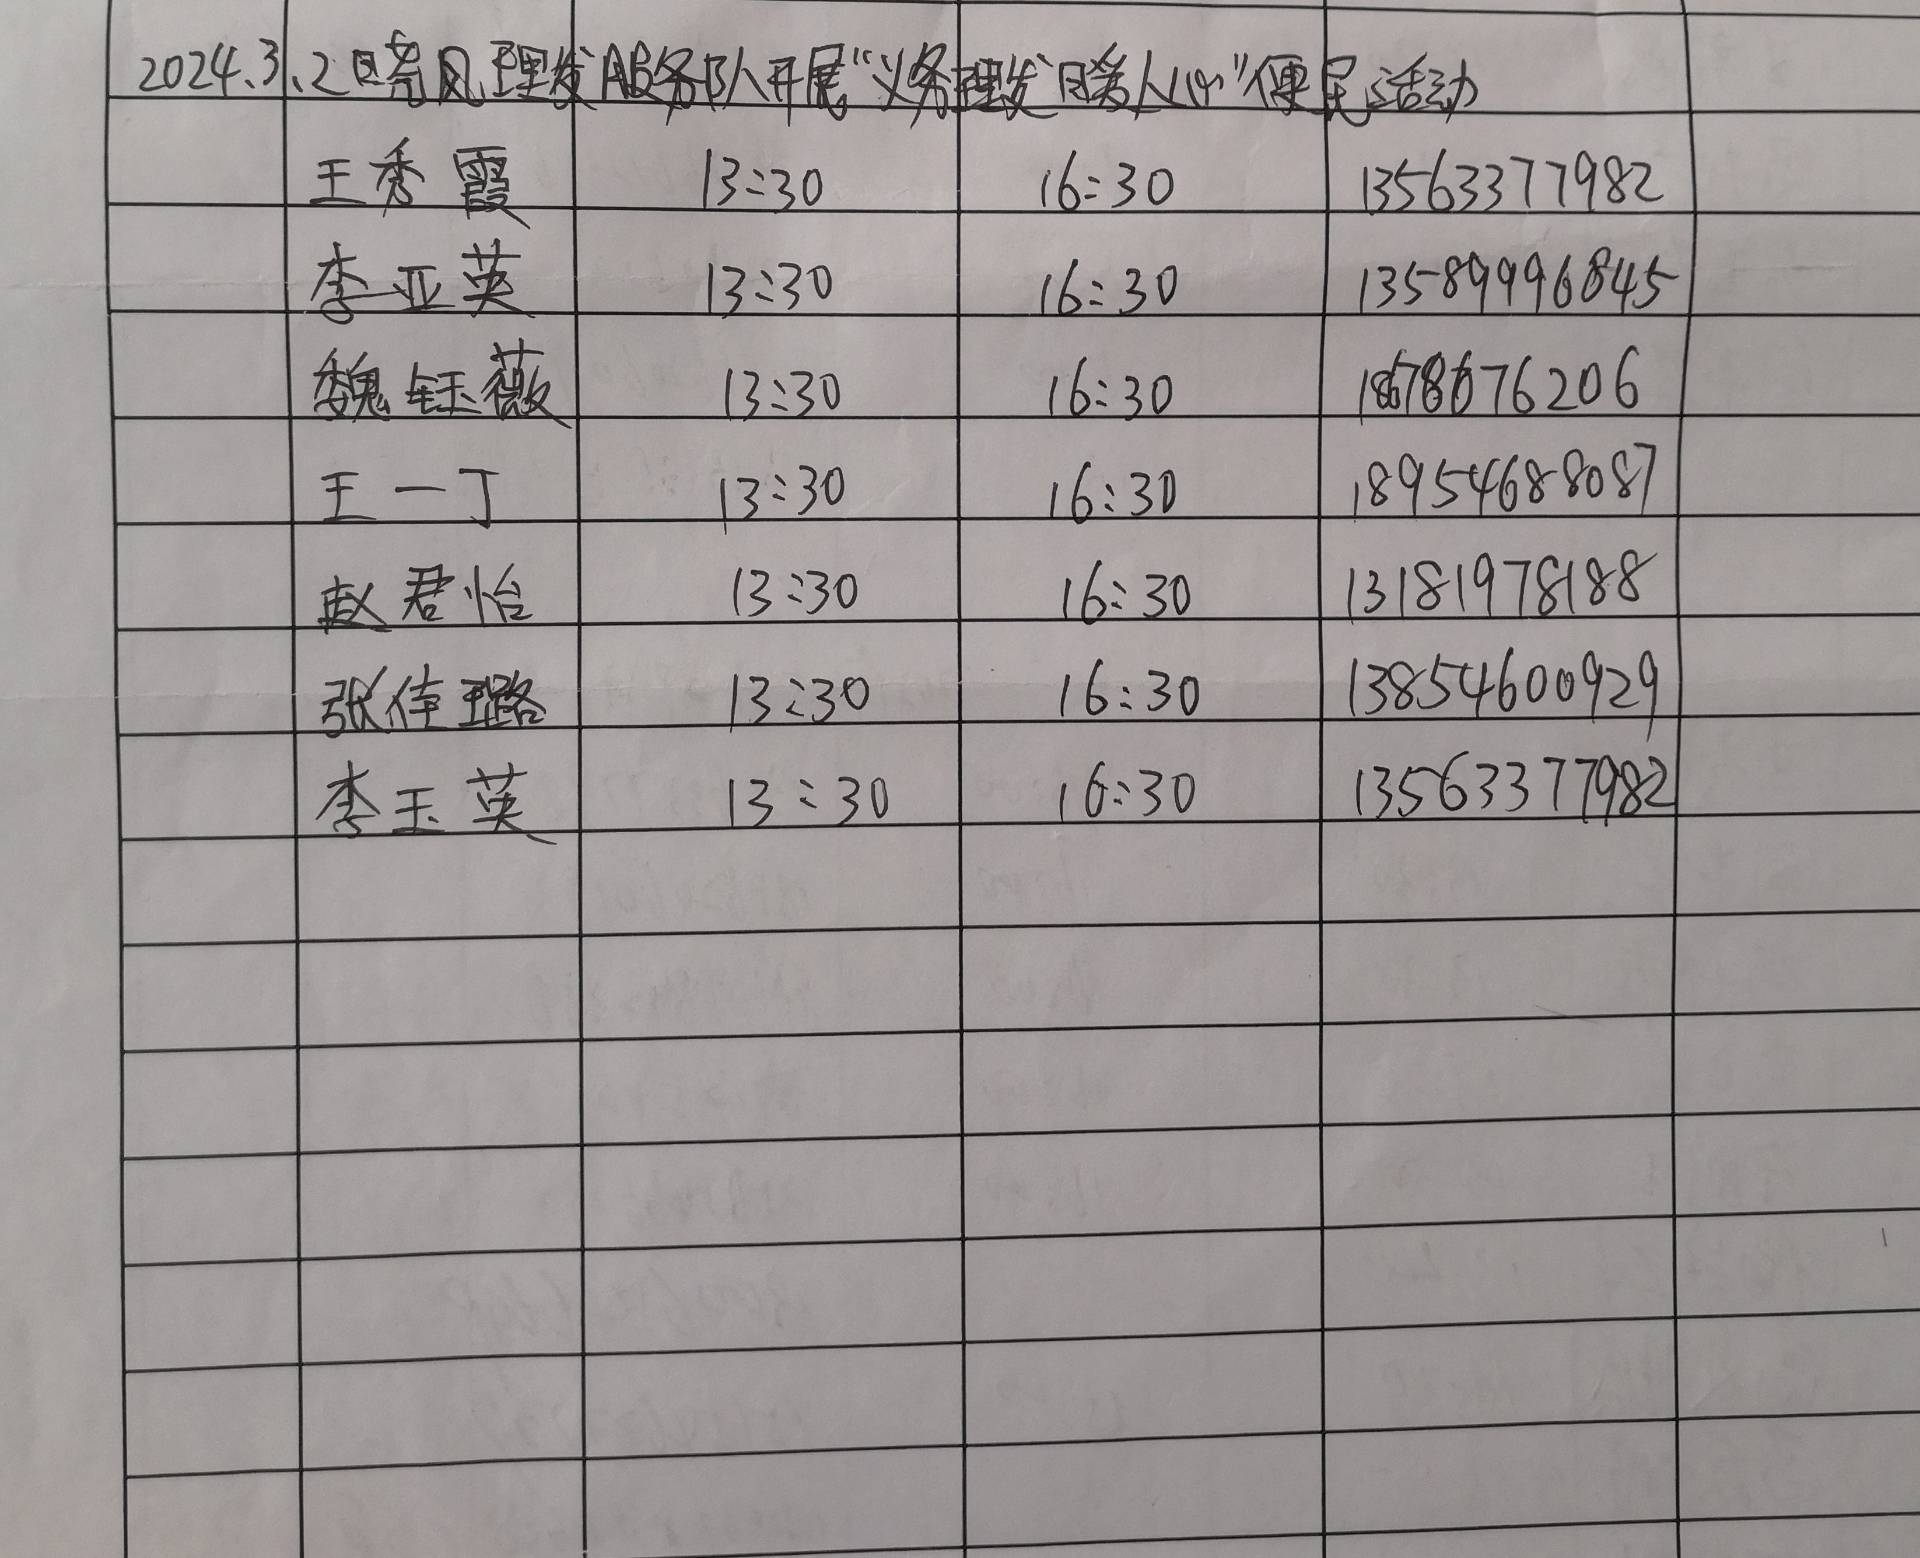 2024.3.2日亮风理发服务队开展“义务理发 暖人心”便民活动
王秀霞 13:30 16:30 13563377982
李亚英 13:30 16:30 13589996845
魏钰薇 13:30 16:30 18678676206
王一丁 13:30 16:30 18954688087
赵君怡 13:30 16:30 13181978188
张倖璐 13:30 16:30 13854600929
李玉英 13:30 16:30 13563377982